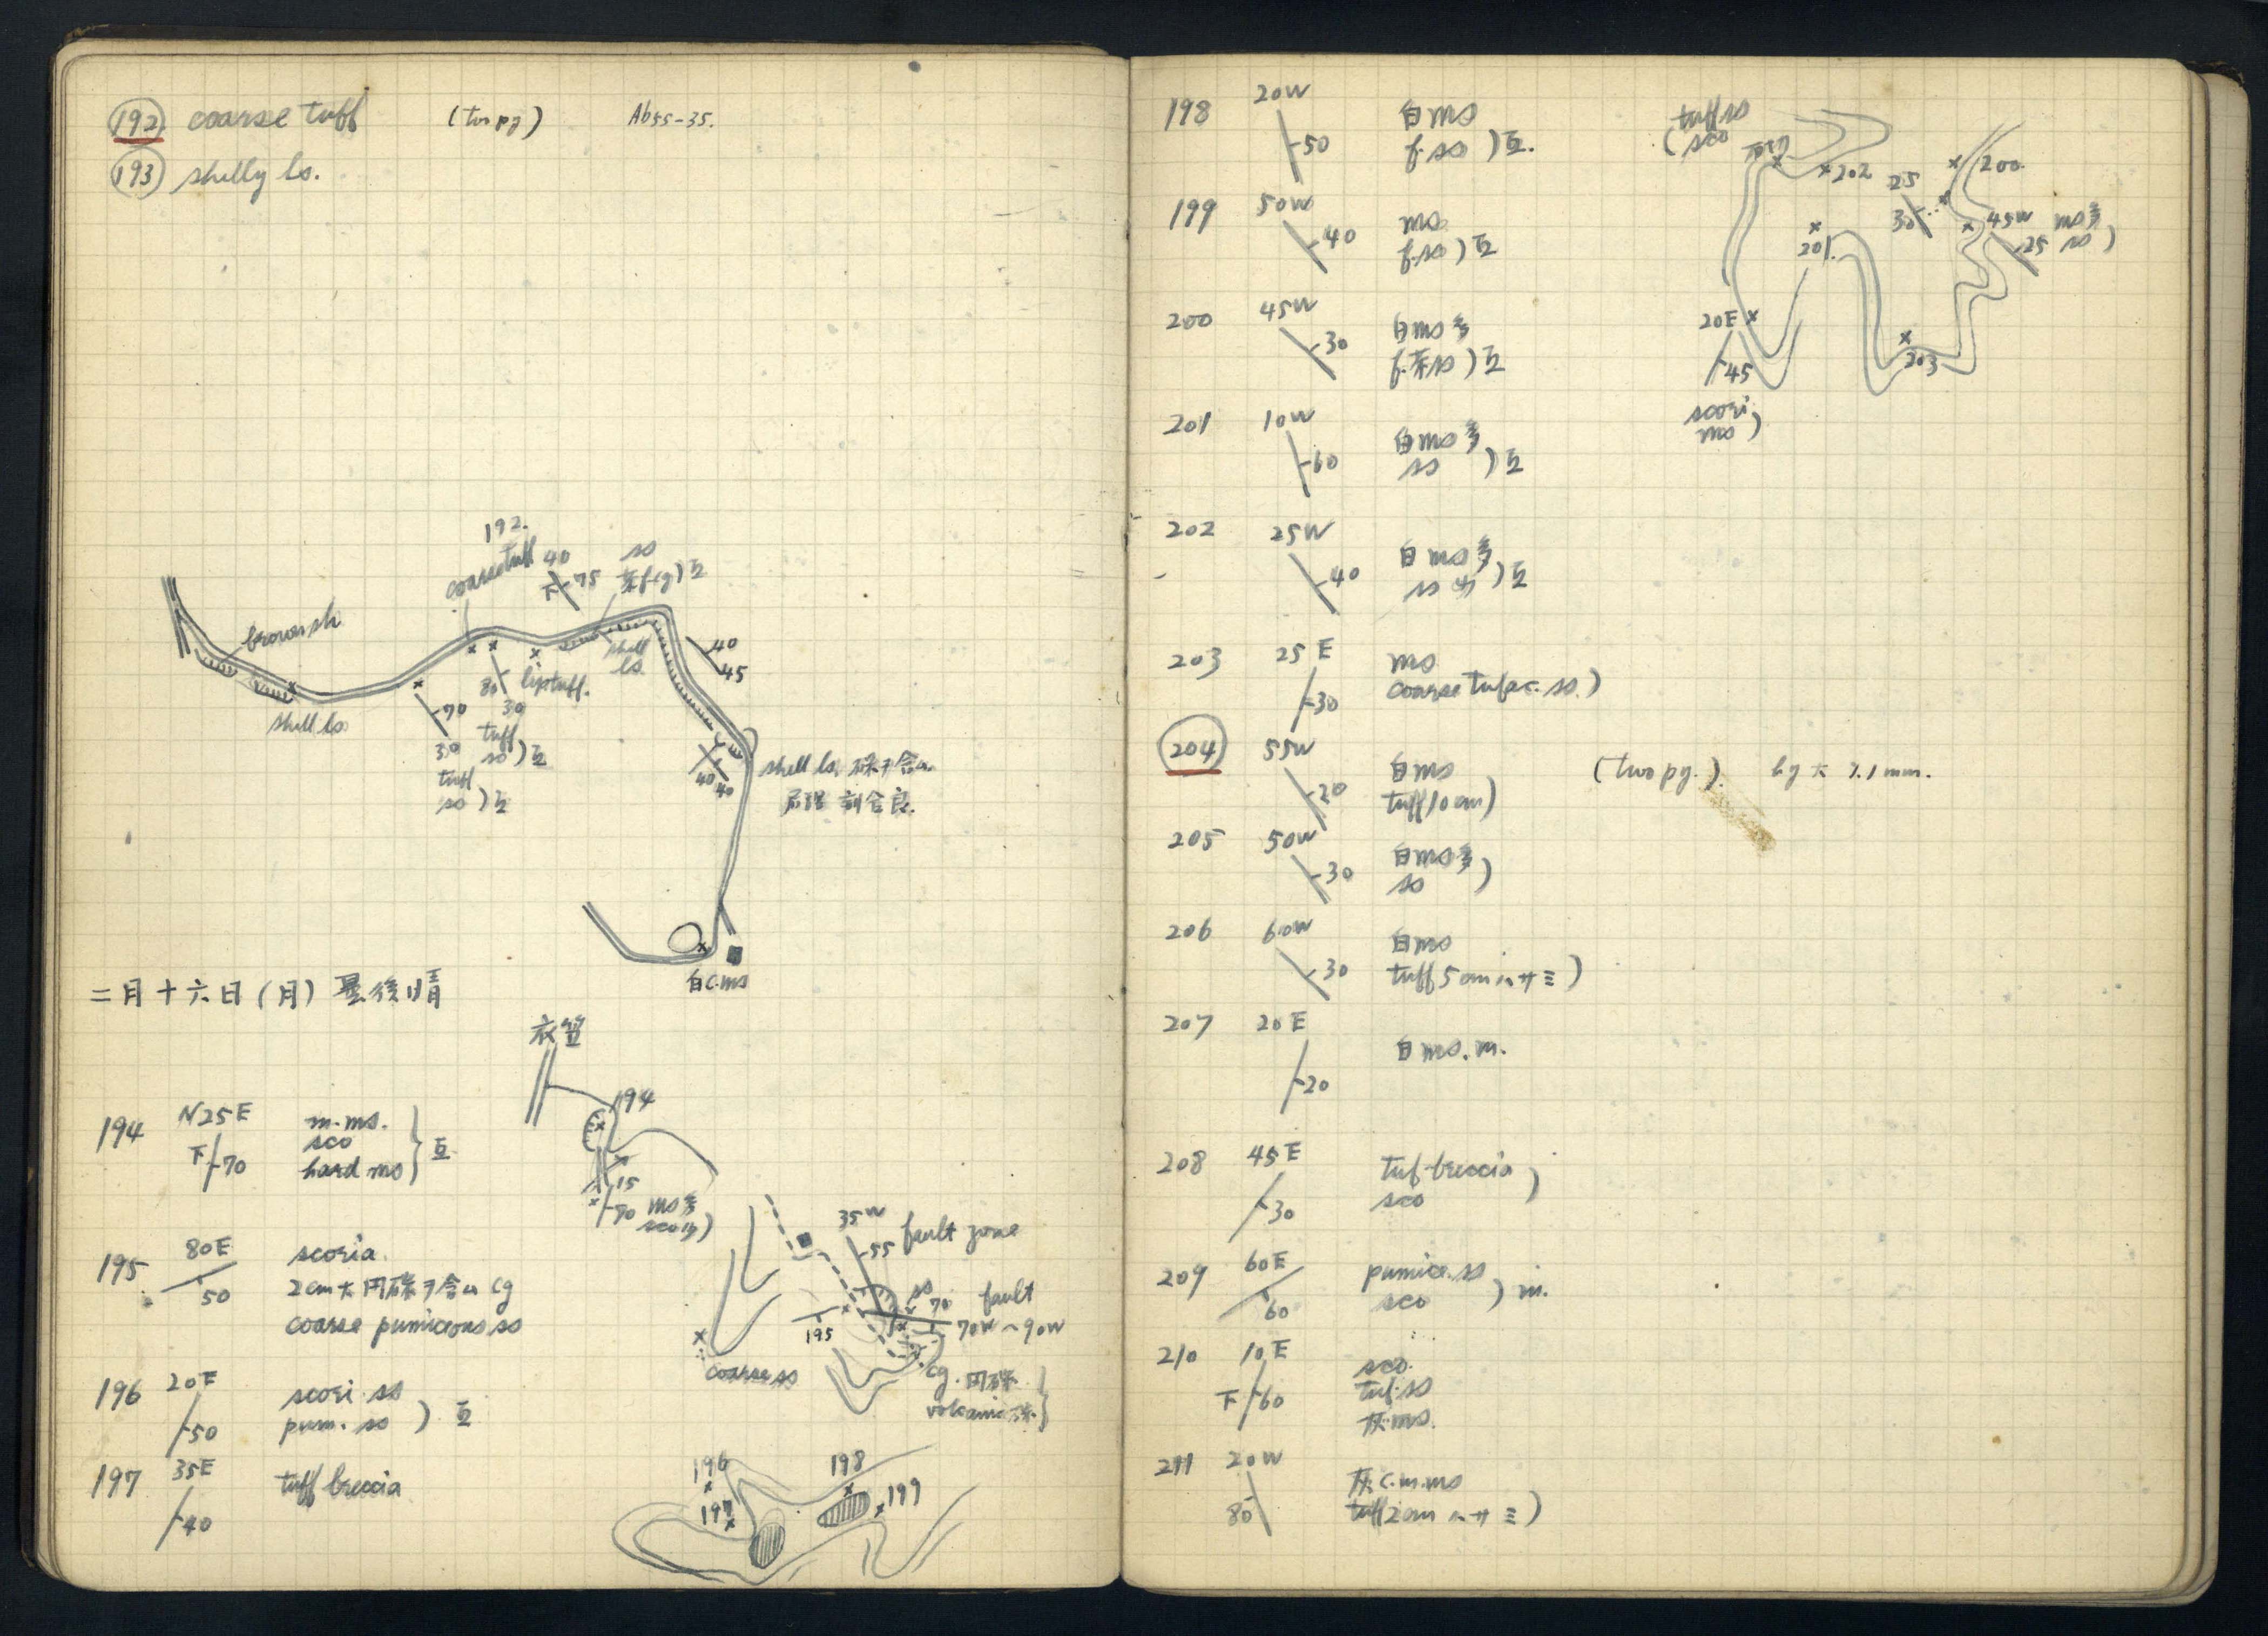 192 coarse tuff (two py) Ab55-35.
193 shelly ls.
192.
coarse tuff
40
下 75
ss
f-(g) ) 互
brown sh
shell ls
shell ls.
40
45
70
30
tuff
ss ) 互
80
30
tuff
ss ) 互
lip tuff.
40
40
shell ls, 礫ヲ含ム
層理 割合良.
白 c.ms
二月十六日(月) 曇後晴
衣笠
194 N25E m.ms.
下 70 sco
hard ms } 互
194
15
70 ms多
sco少 )
195 80E scoria
50 2cm大円礫ヲ含ム cg
coarse pumiceous ss
35W
55 fault zone
ss
70 fault
70W~90W
195
coarse ss
cg. 円礫
volcanic 礫 }
196 20E scori. ss
50 pum. ss ) 互
197 35E tuff breccia
40
196
197
198
199
198 20W 白ms
50 f.ss ) 互.
199 50W ms
40 f.ss ) 互
200 45W 白ms多
30 f.灰ss ) 互
201 10W 白ms多
60 ss ) 互
202 25W 白ms多
40 ss 少 ) 互
203 25E ms
30 coarse tufac. ss. )
204 55W 白ms (two py.). hy 大 7.1mm.
20 tuff 10cm )
205 50W 白ms多
30 ss )
206 60W 白ms
30 tuff 5cm ハサミ )
207 20E 白ms.m.
20
208 45E tuf-breccia
30 sco )
209 60E pumice. ss
60 sco ) m.
210 10E sco.
下 60 tuf. ss
灰.ms.
211 20W 灰 c.m.ms
80 tuff 2cm ハサミ )
tuff ss
( sco
202
25
30
200.
45W ms多
25 ss )
201.
20E
45
203
scori
ms )